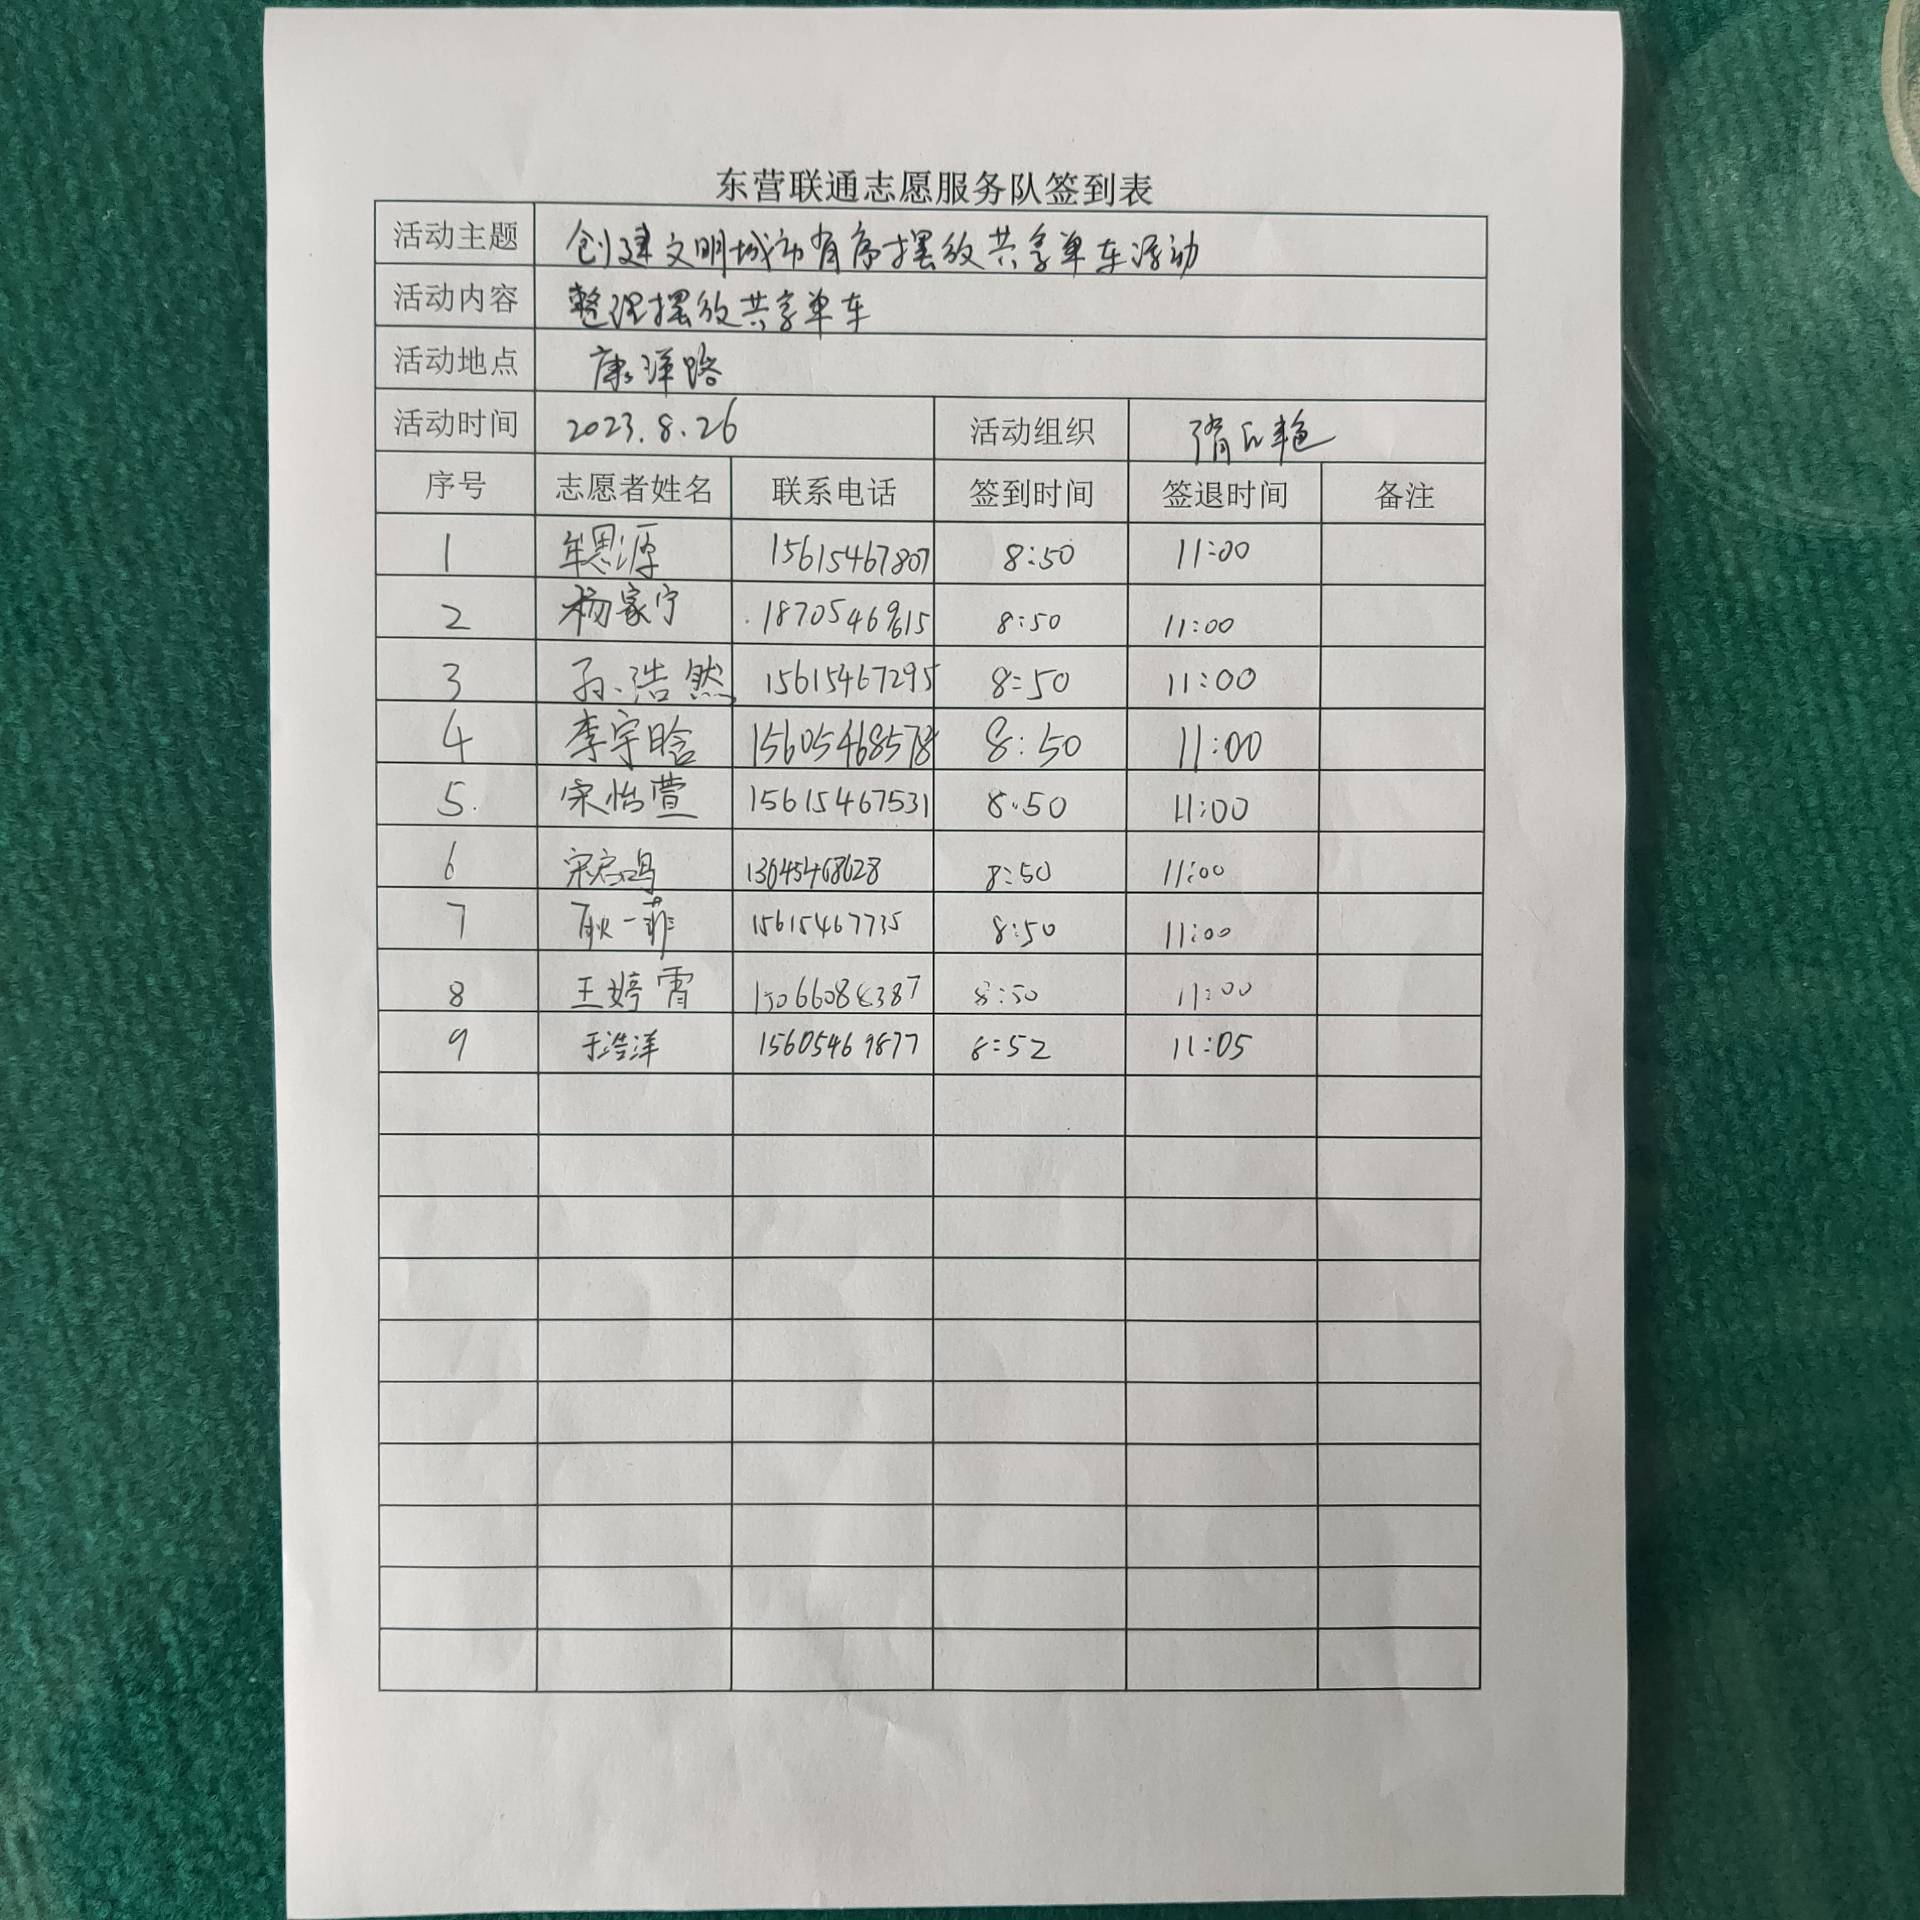 东营联通志愿服务队签到表
活动主题 创建文明城市有序摆放共享单车活动
活动内容 整理摆放共享单车
活动地点 康洋路
活动时间 2023.8.26 活动组织
序号 志愿者姓名 联系电话 签到时间 签退时间 备注
1 牟思源 15615467807 8:50 11:00
2 杨家宁 18705469615 8:50 11:00
3 孙浩然 15615467295 8:50 11:00
4 李宇晗 15605468578 8:50 11:00
5. 宋怡萱 15615467531 8:50 11:00
6 宋启鸣 13645468628 8:50 11:00
7 耿一菲 15615467735 8:50 11:00
8 王婷霄 8:50 11:00
9 于浩洋 15605469877 8:52 11:05